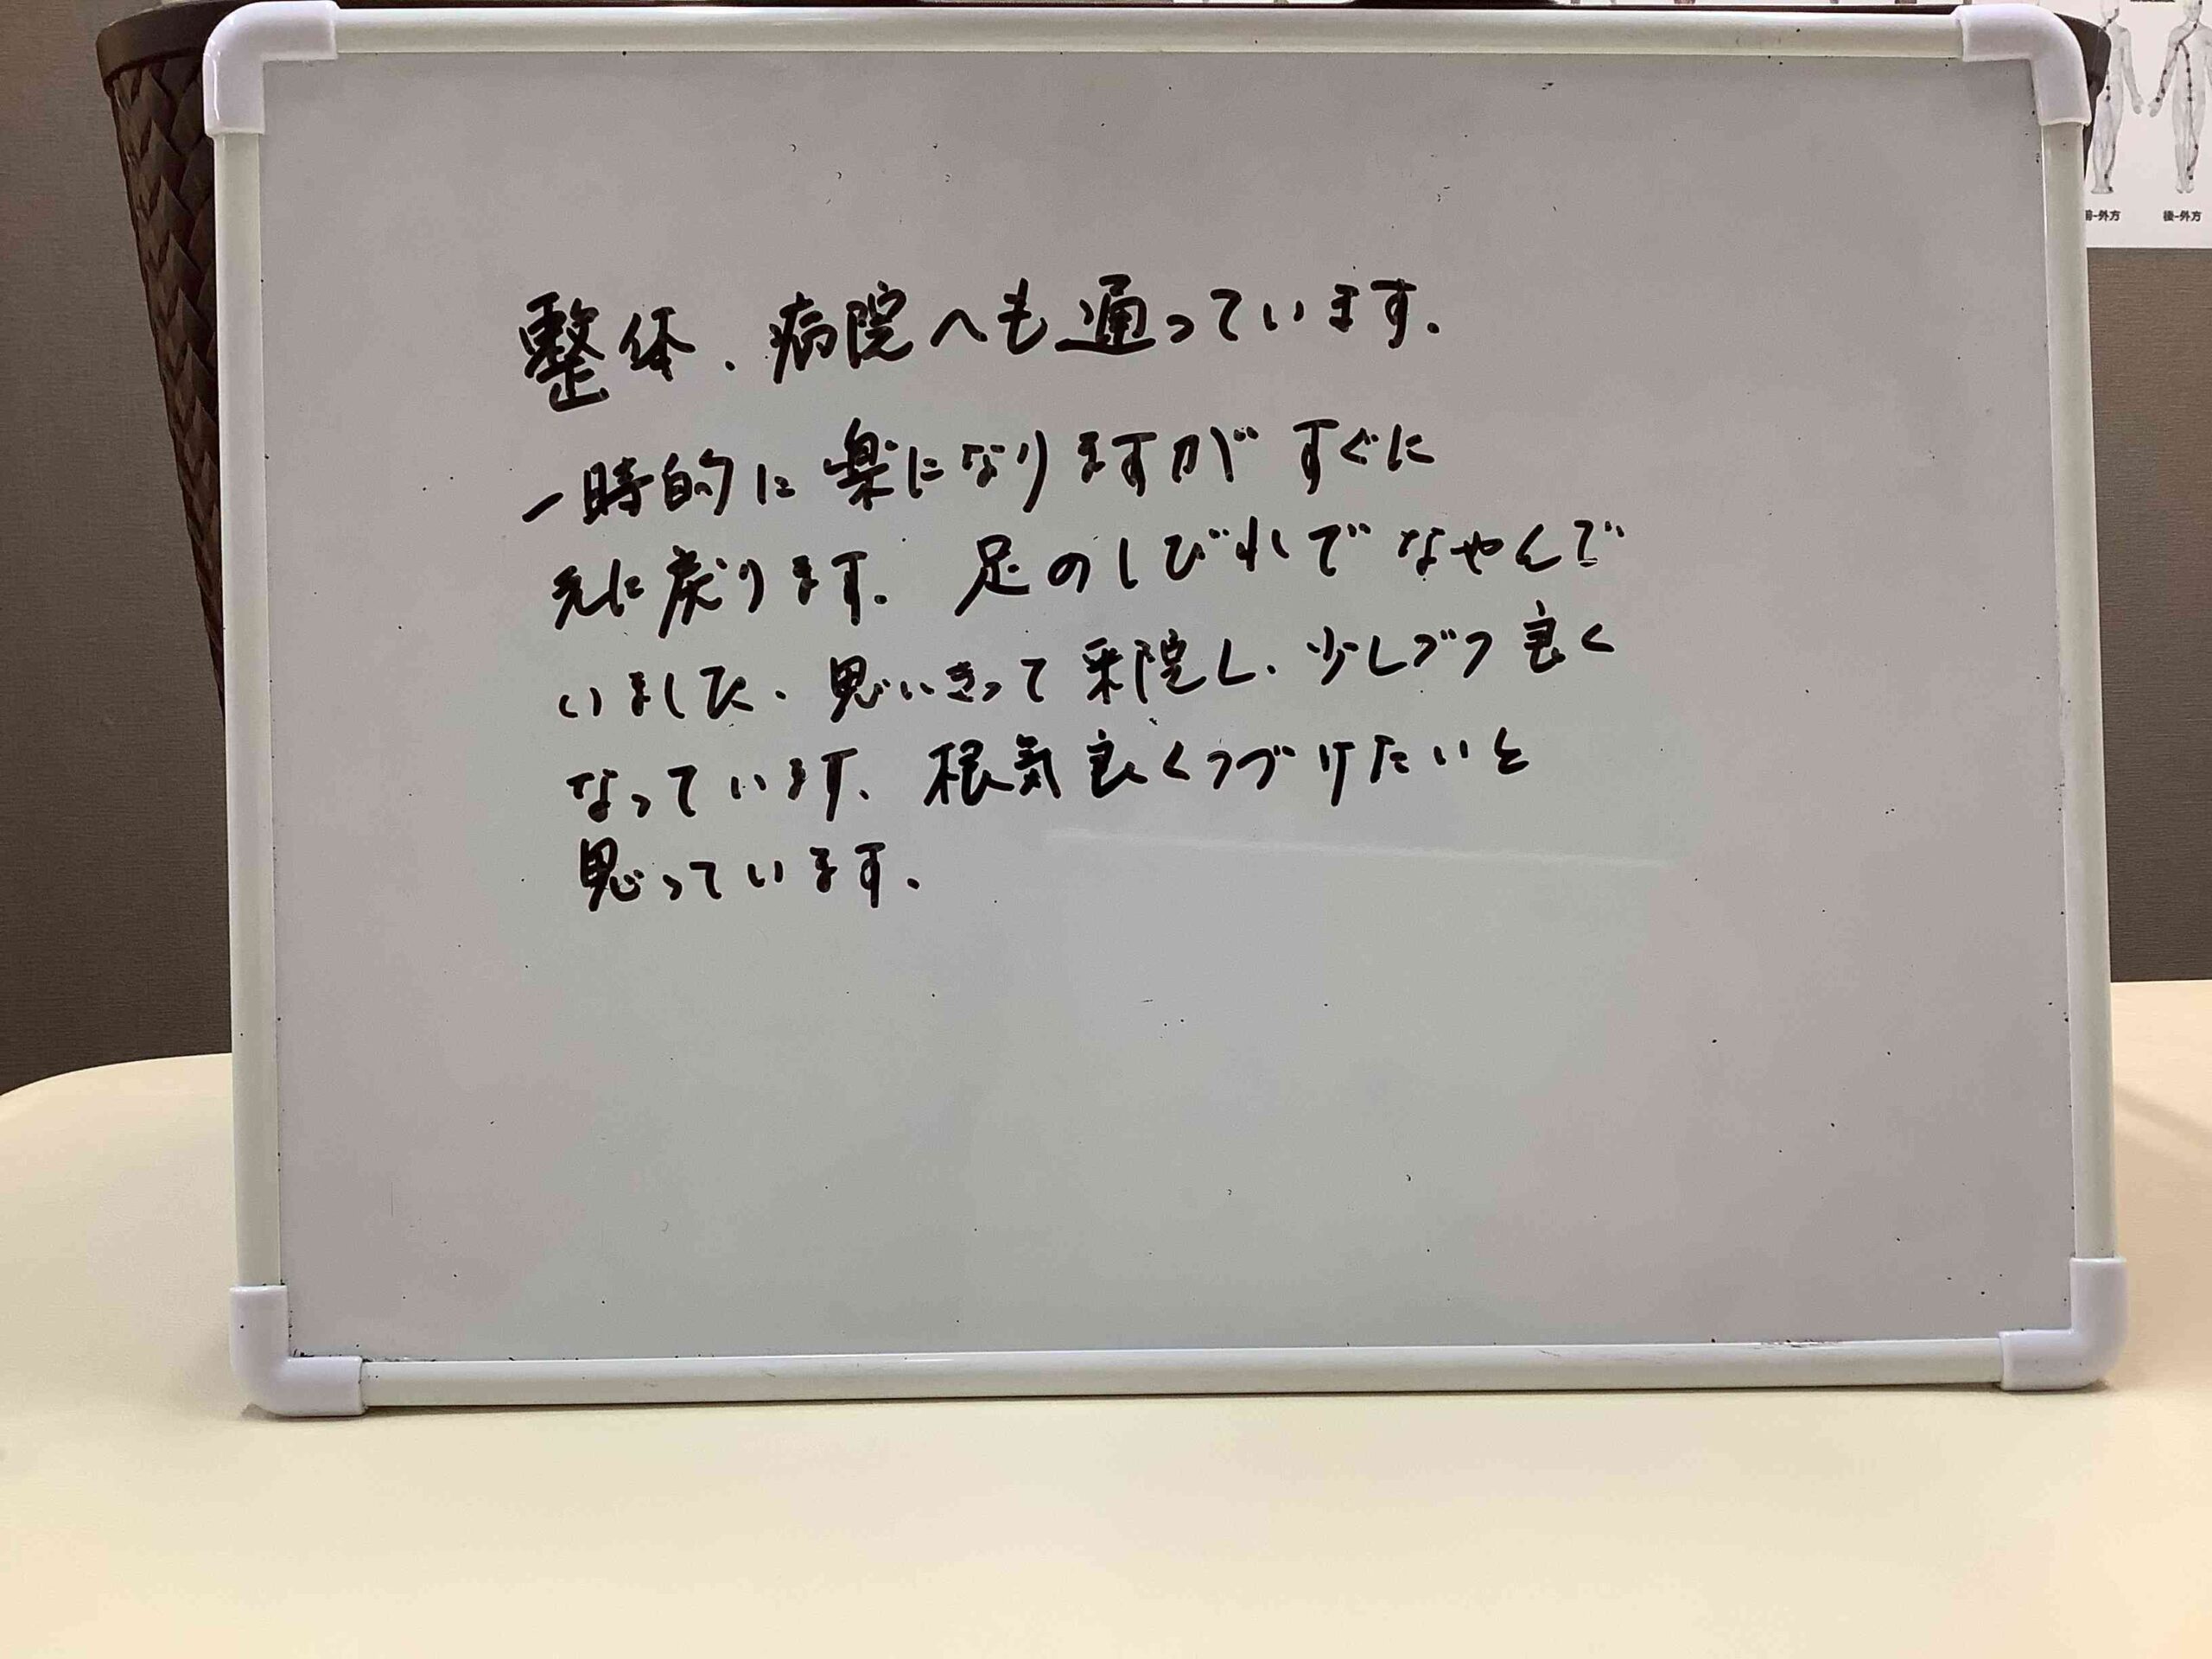 整体、病院へも通っています。
一時的に楽になりますがすぐに
元に戻ります。足のしびれでなやんで
いました、思いきって来院し、少しづつ良く
なっています、根気良くつづけたいと
思っています。
前-外方
後-外方